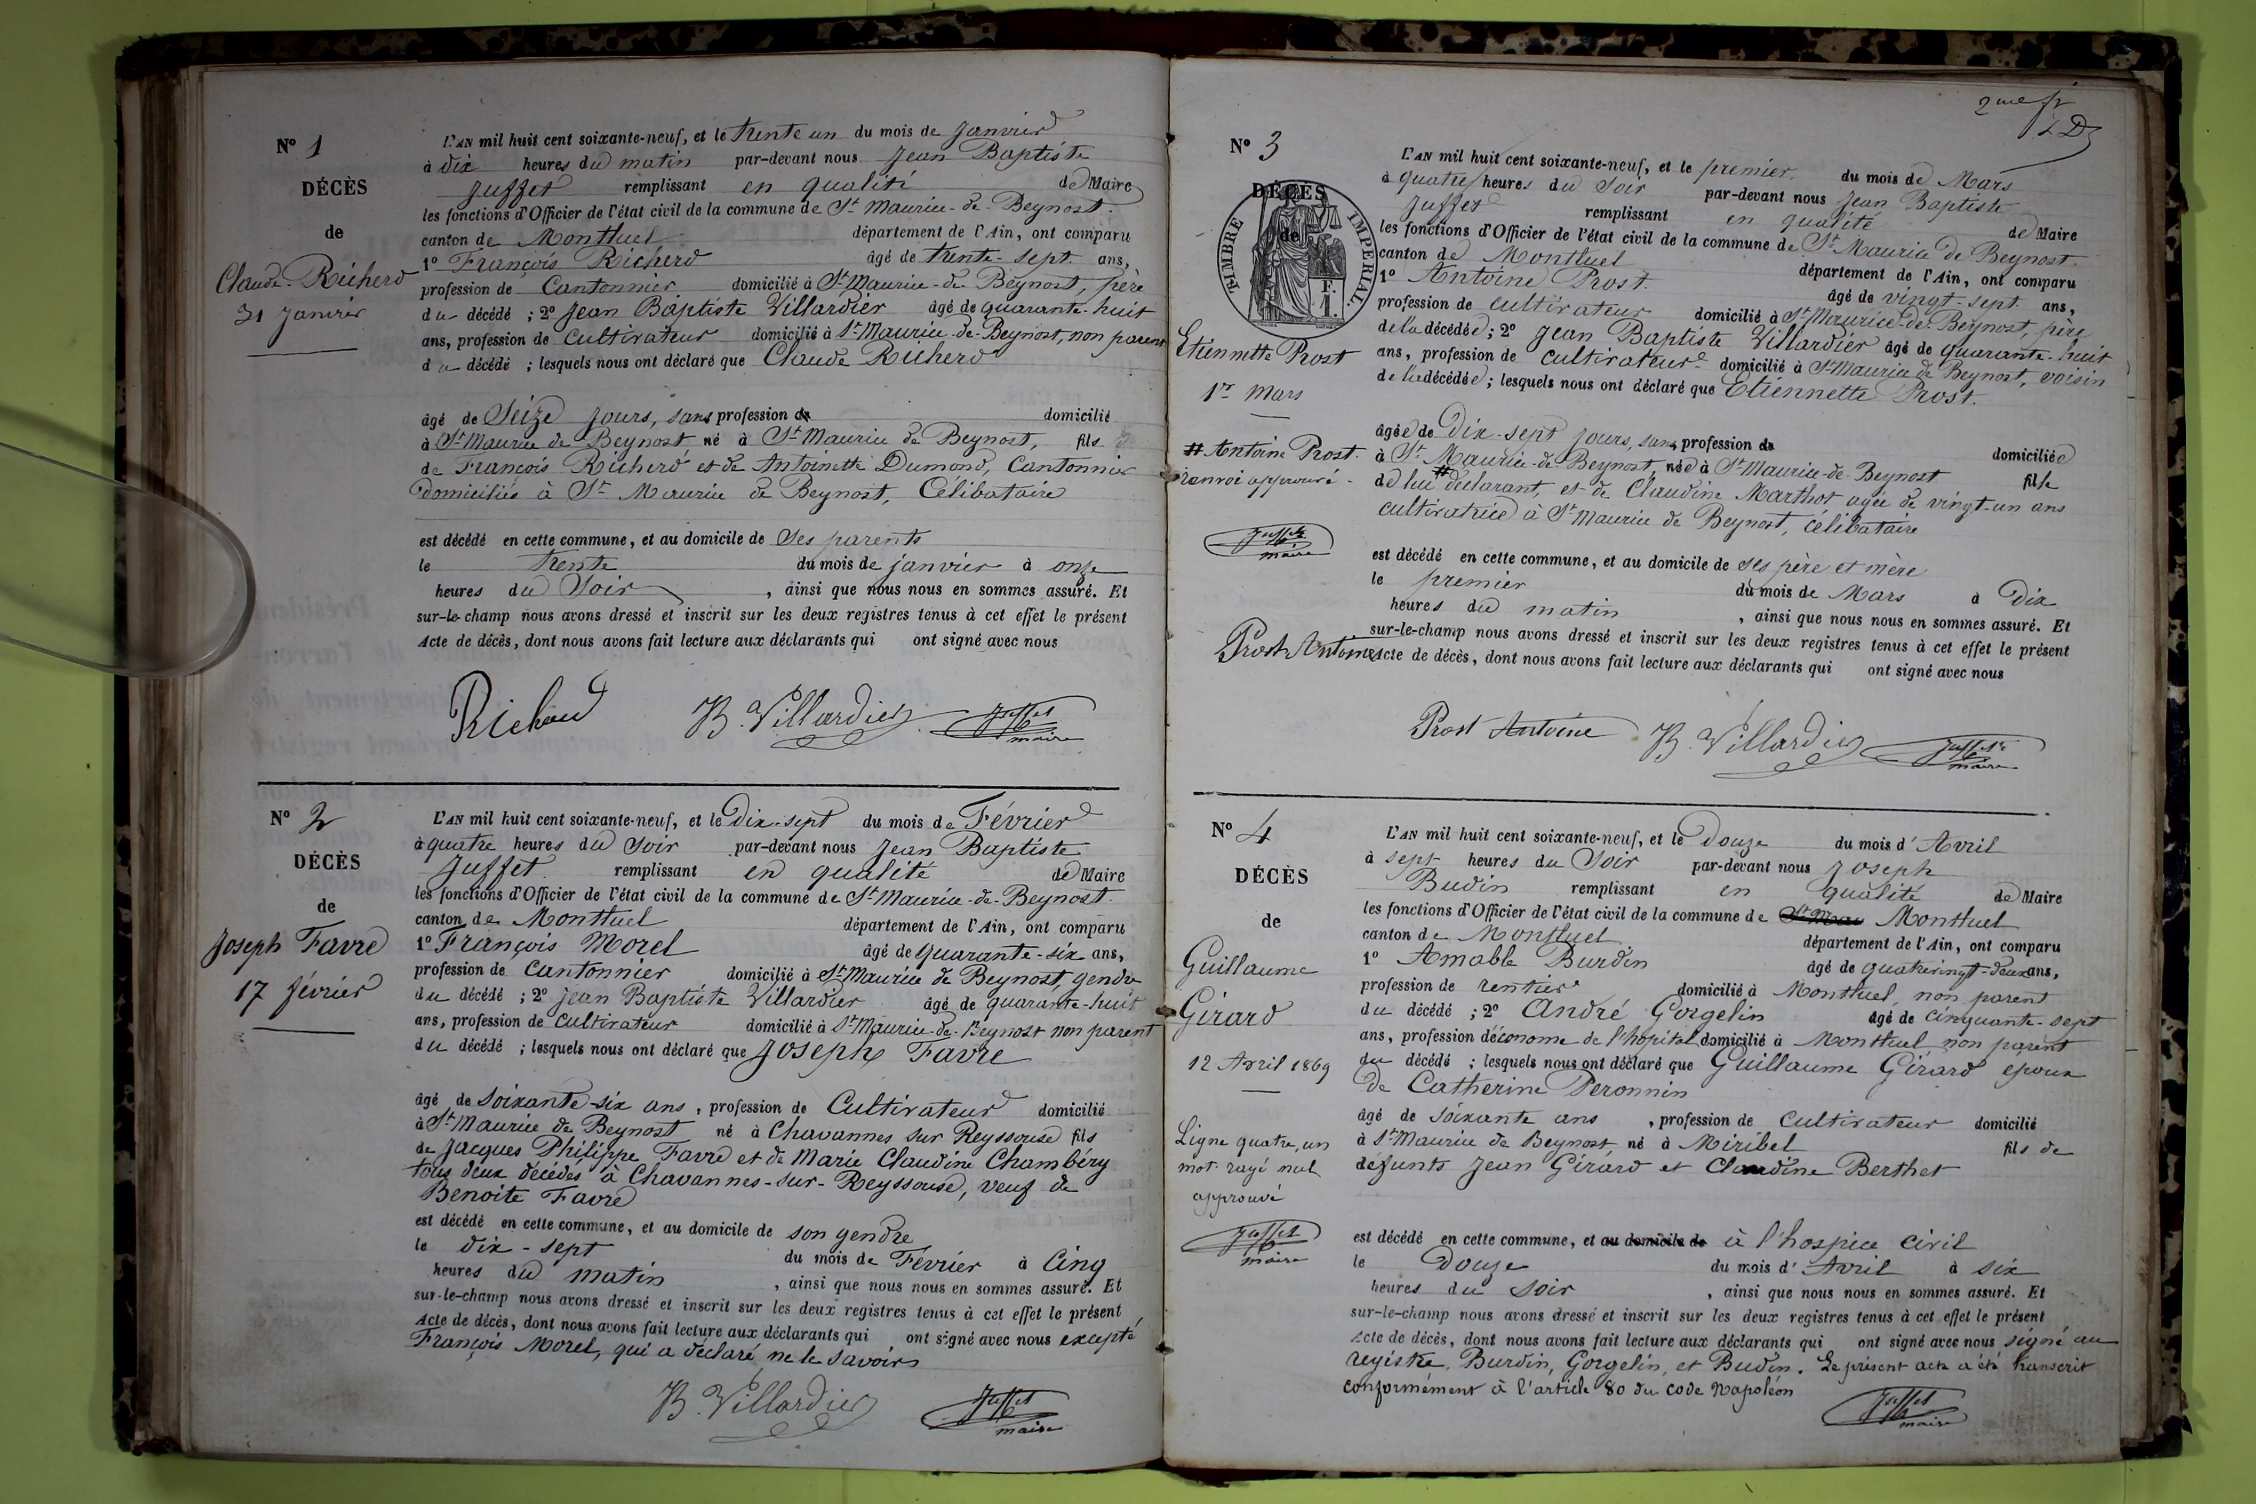 N° 1
DÉCÈS
de
Claude Richerd
31 Janvier
L'AN mil huit cent soixante-neuf, et le trente un du mois de Janvier
à dix heures du matin par-devant nous Jean Baptiste
Juffet remplissant en qualité de Maire
les fonctions d'Officier de l'état civil de la commune de St Maurice-de-Beynost.
canton de Montluel département de l'Ain, ont comparu
1° François Richerd âgé de trente-sept ans,
profession de Cantonnier domicilié à St Maurice-de-Beynost, père
du décédé ; 2° Jean Baptiste Villardier âgé de quarante-huit
ans, profession de cultivateur domicilié à St Maurice-de-Beynost, non parent
du décédé ; lesquels nous ont déclaré que Claude Richerd
âgé de Seize jours, sans profession de domicilié
à St Maurice de Beynost né à St Maurice de Beynost, fils
de François Richerd et de Antoinette Dumond, Cantonnier
domiciliés à St Maurice de Beynost, Célibataire
est décédé en cette commune, et au domicile de Ses parents
le trente du mois de janvier à onze
heures du Soir , ainsi que nous nous en sommes assuré. Et
sur-le-champ nous avons dressé et inscrit sur les deux registres tenus à cet effet le présent
Acte de décès, dont nous avons fait lecture aux déclarants qui ont signé avec nous
Richerd B. Villardier Juffet
maire
N° 2
DÉCÈS
de
Joseph Favre
17 février
L'AN mil huit cent soixante-neuf, et le Dix-sept du mois de Février
à quatre heures du Soir par-devant nous Jean Baptiste
Juffet remplissant en qualité de Maire
les fonctions d'Officier de l'état civil de la commune de St Maurice-de-Beynost.
canton de Montluel département de l'Ain, ont comparu
1° François Morel âgé de quarante-six ans,
profession de cantonnier domicilié à St Maurice de Beynost, gendre
du décédé ; 2° Jean Baptiste Villardier âgé de quarante-huit
ans, profession de cultivateur domicilié à St Maurice-de-Beynost non parent
du décédé ; lesquels nous ont déclaré que Joseph Favre
âgé de soixante-six ans, profession de Cultivateur domicilié
à St Maurice de Beynost né à Chavannes sur Reyssouse fils
de Jacques Philippe Favre et de Marie Claudine Chambéry
tous deux décédés à Chavannes-sur-Reyssouse, veuf de
Benoite Favre
est décédé en cette commune, et au domicile de son gendre
le dix-sept du mois de Février à Cinq
heures du matin , ainsi que nous nous en sommes assuré. Et
sur-le-champ nous avons dressé et inscrit sur les deux registres tenus à cet effet le présent
Acte de décès, dont nous avons fait lecture aux déclarants qui ont signé avec nous excepté
François Morel, qui a déclaré ne le savoir
B. Villardier Juffet
maire
2me f.
N° 3
DÉCÈS
de
TIMBRE IMPÉRIAL
F.
1.
Etiennette Prost
1er Mars
# Antoine Prost.
renvoi approuvé.
Juffet
maire
Prost Antoine
L'AN mil huit cent soixante-neuf, et le premier du mois de Mars
à quatre heures du Soir par-devant nous Jean Baptiste
Juffet remplissant en qualité de Maire
les fonctions d'Officier de l'état civil de la commune de St Maurice de Beynost.
canton de Montluel département de l'Ain, ont comparu
1° Antoine Prost. âgé de vingt-sept ans,
profession de cultivateur domicilié à St Maurice-de-Beynost, père
de la décédée ; 2° Jean Baptiste Villardier âgé de quarante-huit
ans, profession de cultivateur domicilié à St Maurice de Beynost, voisin
de la décédée ; lesquels nous ont déclaré que Etiennette Prost.
âgée de Dix-sept jours, sans profession de domiciliée
à St Maurice-de-Beynost, née à St Maurice-de-Beynost fille
de lui # déclarant, et de Claudine Marthot agée de vingt-un ans
cultivatrice à St Maurice de Beynost, célibataire
est décédé en cette commune, et au domicile de ses père et mère
le premier du mois de Mars à Dix
heures du matin , ainsi que nous nous en sommes assuré. Et
sur-le-champ nous avons dressé et inscrit sur les deux registres tenus à cet effet le présent
Acte de décès, dont nous avons fait lecture aux déclarants qui ont signé avec nous
Prost Antoine B. Villardier Juffet
maire
N° 4
DÉCÈS
de
Guillaume
Girard
12 Avril 1869
Ligne quatre, un
mot rayé nul
approuvé
Juffet
maire
L'AN mil huit cent soixante-neuf, et le Douze du mois d'Avril
à sept heures du Soir par-devant nous Joseph
Budin remplissant en qualité de Maire
les fonctions d'Officier de l'état civil de la commune de St Mau Montluel
canton de Montluel département de l'Ain, ont comparu
1° Amable Burdin âgé de quatrevingt-deux ans,
profession de rentier domicilié à Montluel, non parent
du décédé ; 2° André Gorgelin âgé de cinquante-sept
ans, profession d'économe de l'hopital domicilié à Montluel non parent
du décédé ; lesquels nous ont déclaré que Guillaume Girard époux
de Catherine Peronnin
âgé de soixante ans , profession de cultivateur domicilié
à St Maurice de Beynost, né à Miribel fils de
défunts Jean Girard et Claudine Berthet
est décédé en cette commune, et au domicile de à l'hospice civil
le Douze du mois d'Avril à six
heures du soir , ainsi que nous nous en sommes assuré. Et
sur-le-champ nous avons dressé et inscrit sur les deux registres tenus à cet effet le présent
Acte de décès, dont nous avons fait lecture aux déclarants qui ont signé avec nous signé au
registre, Burdin, Gorgelin, et Budin. Le présent acte a été transcrit
conformément à l'article 80 du code Napoléon
Juffet
maire